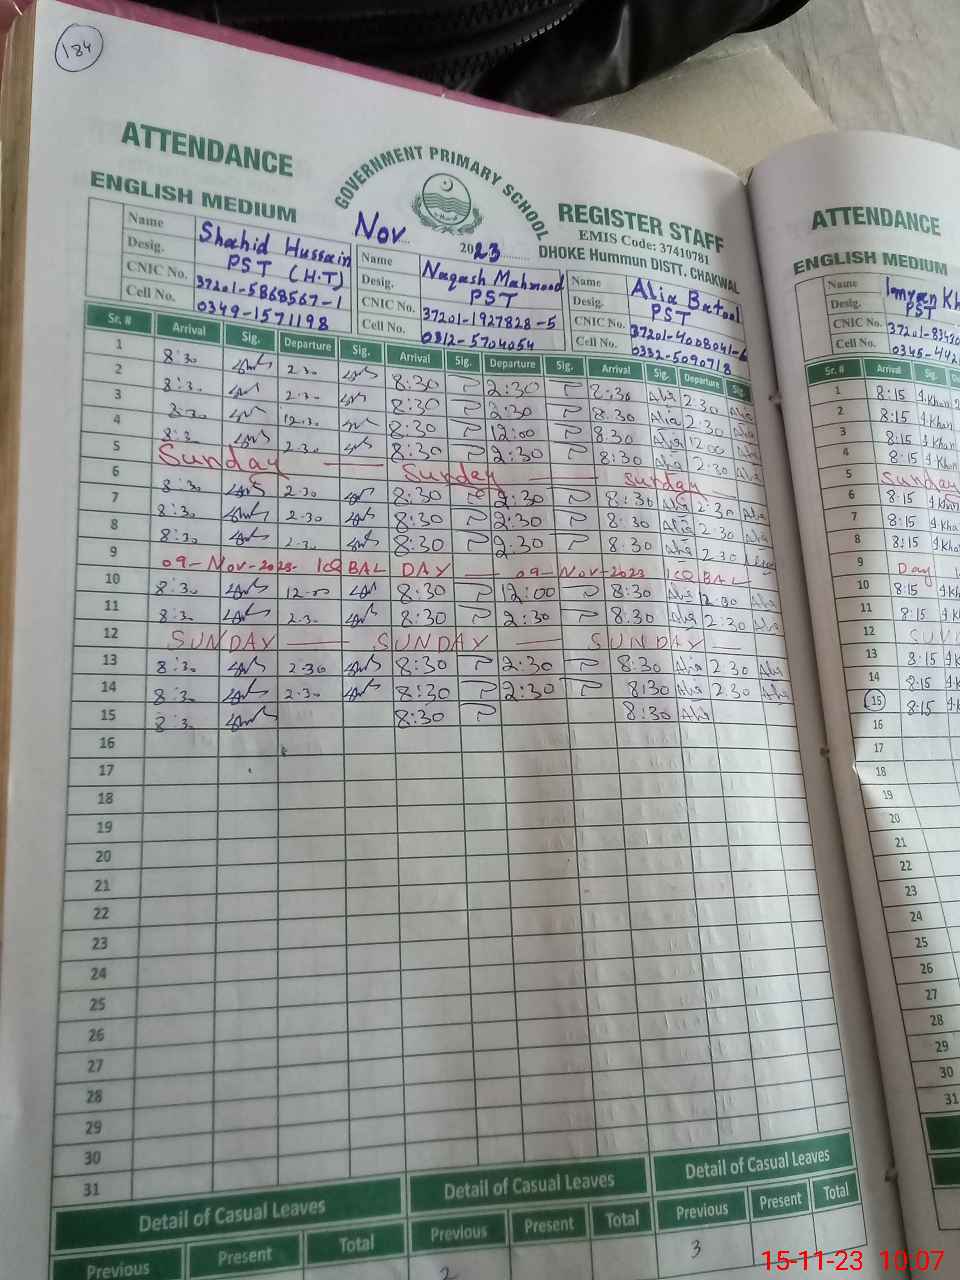 184
ATTENDANCE
ENGLISH MEDIUM
GOVERNMENT PRIMARY SCHOOL
REGISTER STAFF
EMIS Code: 37410781
DHOKE Hummun DISTT. CHAKWAL
Nov 2023
Name Shahid Hussain
Desig. PST (H.T)
CNIC No. 37201-5868567-1
Cell No. 0349-1571198
Name Naqash Mahmood
Desig. PST
CNIC No. 37201-1927828-5
Cell No. 0312-5704054
Name Alia Batool
Desig. PST
CNIC No. 37201-4008041-6
Cell No. 0332-5090718
Sr. # Arrival Sig. Departure Sig. Arrival Sig. Departure Sig. Arrival Sig. Departure Sig.
1 8:30 2:30 8:30 2:30 8:30 Alia 2:30 Alia
2 8:30 2:30 8:30 2:30 8:30 Alia 2:30 Alia
3 8:30 12:30 8:30 12:00 8:30 Alia 12:00 Alia
4 8:30 2:30 8:30 2:30 8:30 Alia 2:30 Alia
5 Sunday Sunday Sunday
6 8:30 2:30 8:30 2:30 8:30 Alia 2:30 Alia
7 8:30 2:30 8:30 2:30 8:30 Alia 2:30 Alia
8 8:30 2:30 8:30 2:30 8:30 Alia 2:30
9 09-Nov-2023 IQBAL DAY 09-Nov-2023 IQBAL
10 8:30 12:00 8:30 12:00 8:30 Alia Alia
11 8:30 2:30 8:30 2:30 8:30 Alia 2:30 Alia
12 SUNDAY SUNDAY SUNDAY
13 8:30 2:30 8:30 2:30 8:30 Alia 2:30 Alia
14 8:30 2:30 8:30 2:30 8:30 Alia 2:30 Alia
15 8:30 8:30 8:30 Alia
16
17
18
19
20
21
22
23
24
25
26
27
28
29
30
31
Detail of Casual Leaves Detail of Casual Leaves Detail of Casual Leaves
Previous Present Total Previous Present Total Previous Present Total
2 3
ATTENDANCE
ENGLISH MEDIUM
Name Imran Kh
Desig. PST
CNIC No. 37201-83430
Cell No. 0345-442
Sr. # Arrival Sig.
1 8:15 I.Khan
2 8:15 I.Khan
3 8:15 I.Khan
4 8:15 I.Khan
5 Sunday
6 8:15 I.Khan
7 8:15 I.Kha
8 8:15 I.Kha
9 Day
10 8:15 I.Kh
11 8:15 I.Kh
12 SUN
13 8:15 I.Kh
14 8:15 I.Kh
15 8:15 I.K
16
17
18
19
20
21
22
23
24
25
26
27
28
29
30
31
15-11-23 10:07